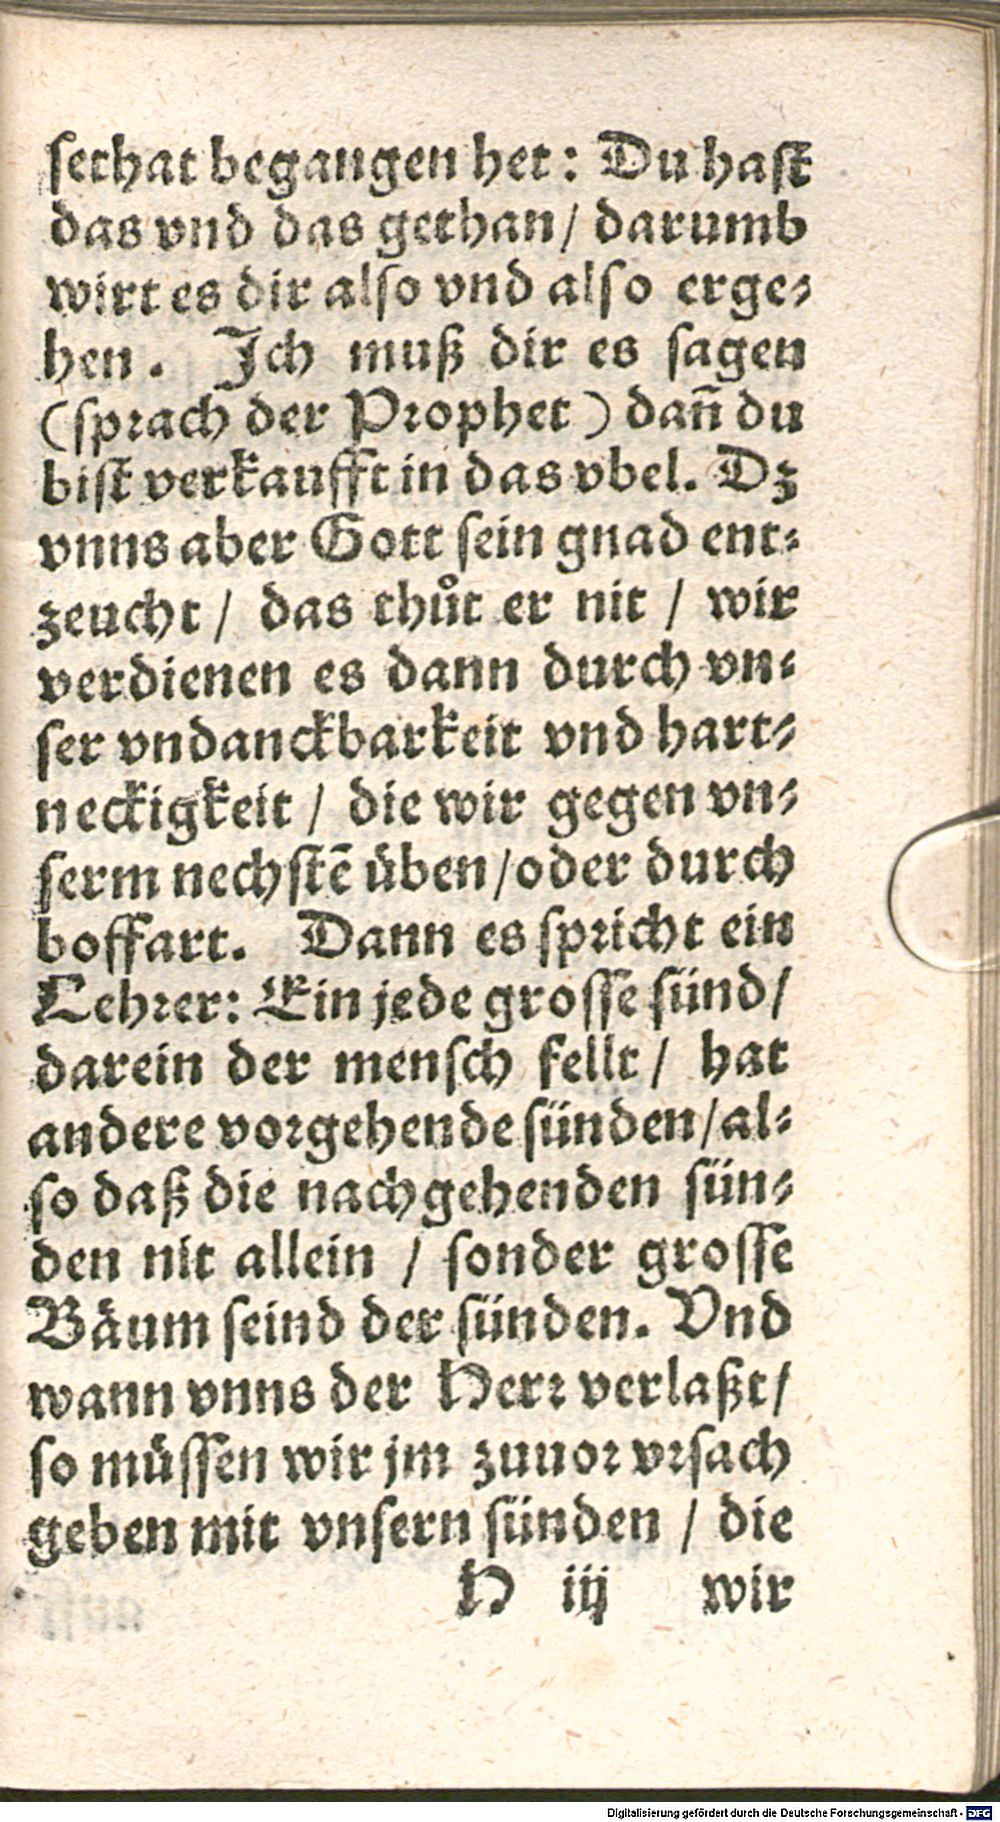 sethat begangen het: Du hast
das vnd das gethan / darumb
wirt es dir also vnd also erge⸗
hen. Ich muß dir es sagen
(sprach der Prophet) dañ du
bist verkaufft in das vbel. Dz
vnns aber Gott sein gnad ent⸗
zeucht / das thůt er nit / wir
verdienen es dann durch vn⸗
ser vndanckbarkeit vnd hart⸗
neckigkeit / die wir gegen vn⸗
serm nechstē üben / oder durch
hoffart. Dann es spricht ein
Lehrer: Ein jede grosse sünd /
darein der mensch fellt / hat
andere vorgehende sünden / al⸗
so daß die nachgehenden sün⸗
den nit allein / sonder grosse
Bäum seind der sünden. Vnd
wann vnns der Herr verlaßt /
so müssen wir jm zuuor vrsach
geben mit vnsern sünden / die
H iij wir
Digitalisierung gefördert durch die Deutsche Forschungsgemeinschaft - DFG